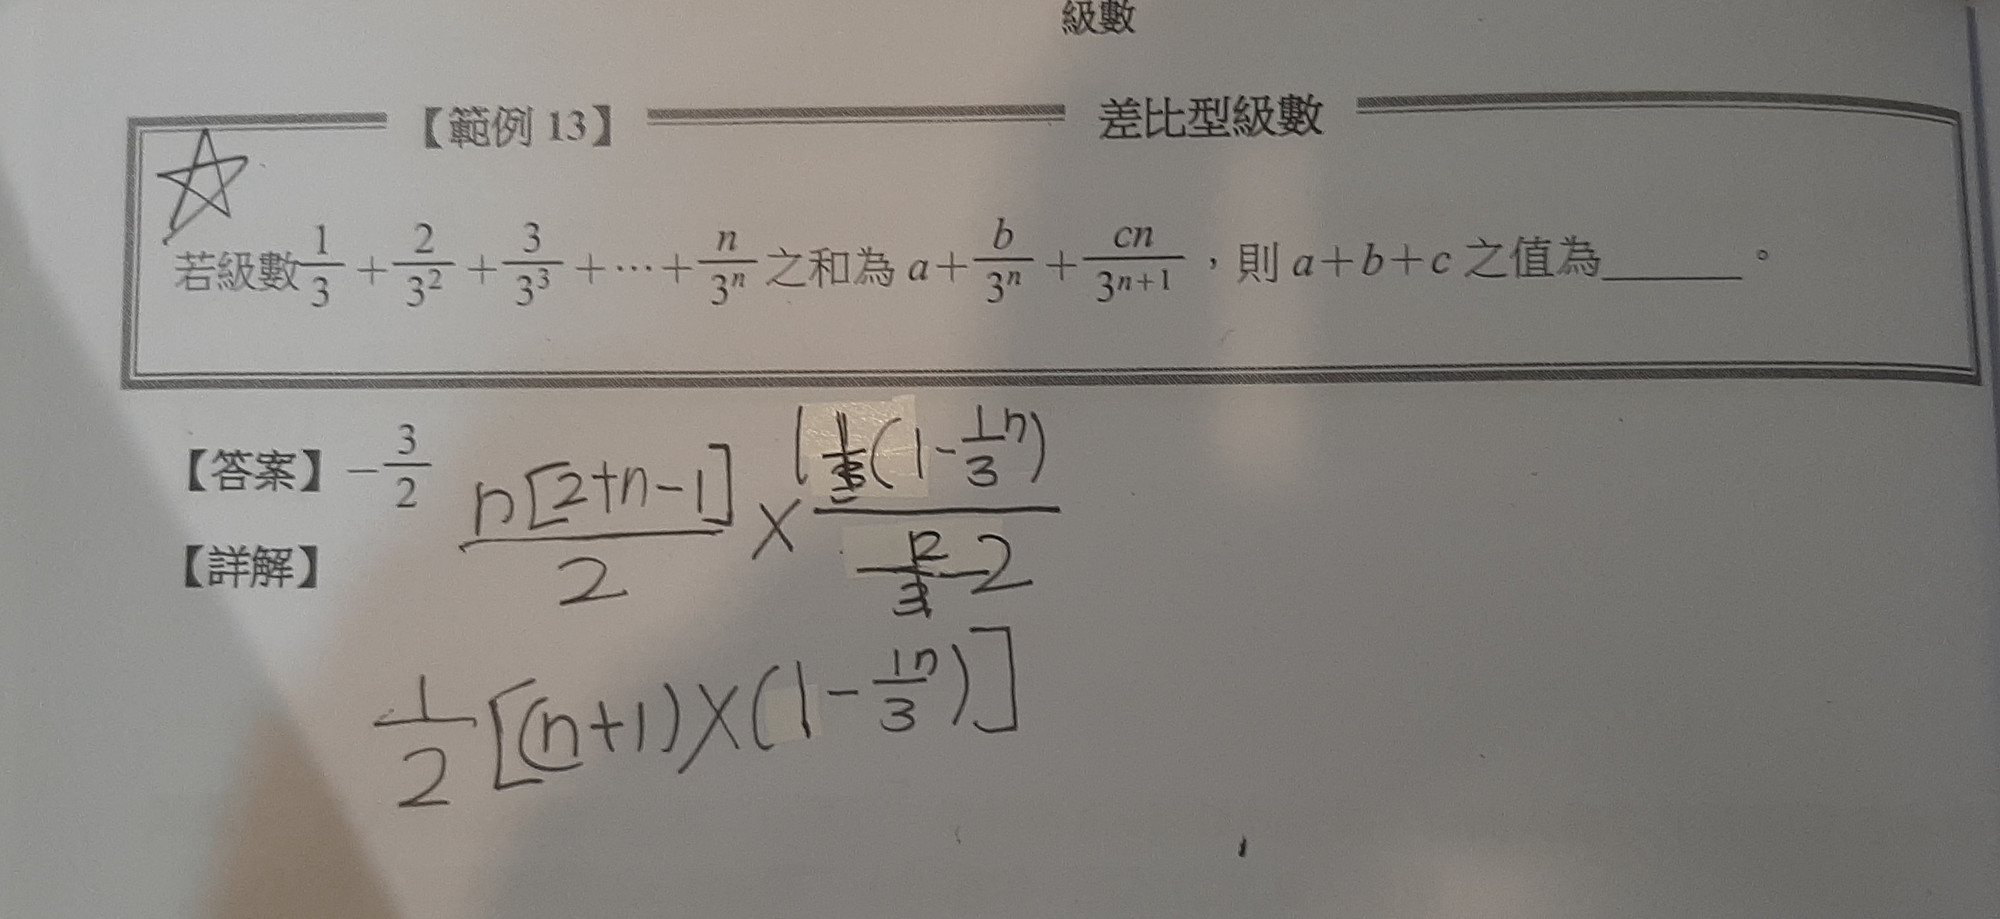 級數
【範例 13】 差比型級數
若級數 1/3 + 2/3² + 3/3³ + ⋯ + n/3ⁿ 之和為 a + b/3ⁿ + cn/3ⁿ⁺¹，則 a+b+c 之值為______。
【答案】 -3/2
【詳解】
n[2+n-1]/2 × (1-1/3 n)/2
1/2 [(n+1)×(1-1/3 n)]